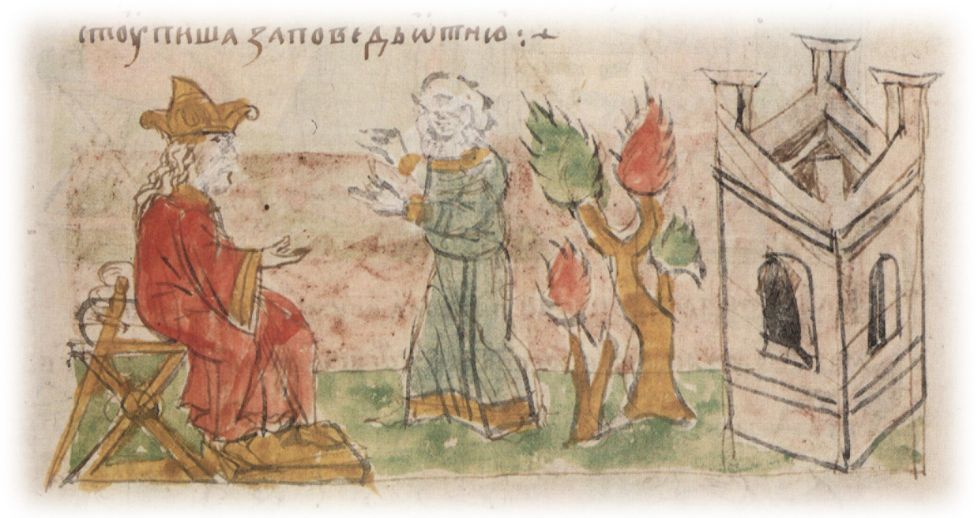 стоупиша заповедь ѿтню :⁓